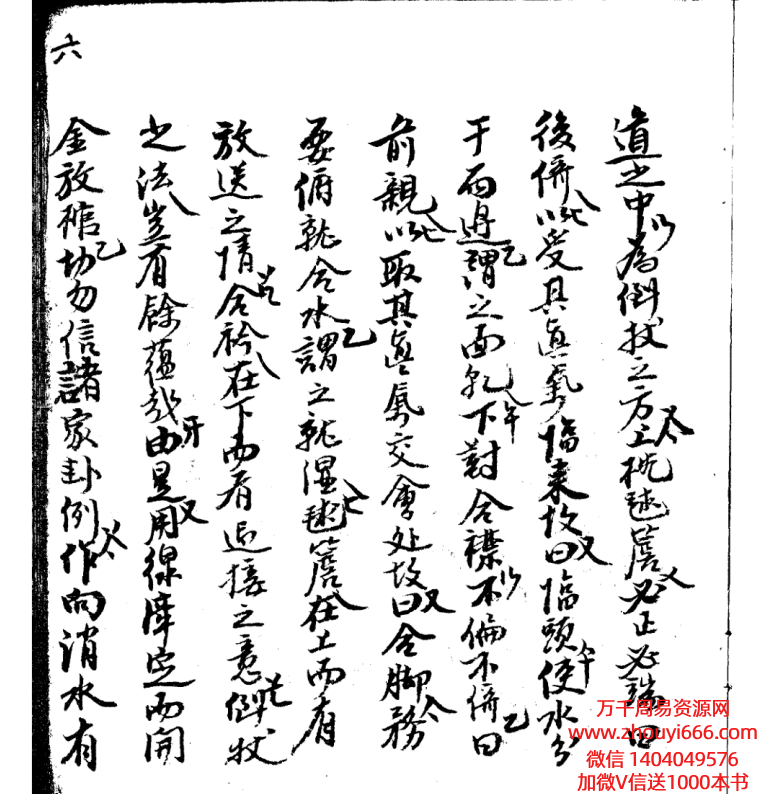 六
道之中為倒杖之方上枕毬簷必正必端曰
後倚以受其真氣臨來故曰臨頭使水分
于兩邊謂之面乾下對合襟不偏不倚曰
前親以取其真氣交會处故曰合脚務
要俯就合水謂之就湿毬簷在上而有
放送之情合衿在下而有迎接之意倒杖
之法豈有餘蕴哉由是用線牵定而開
金放棺切勿信諸家卦例作向消水有
万千周易资源网
www.zhouyi666.com
微信 1404049576
加微V信送1000本书